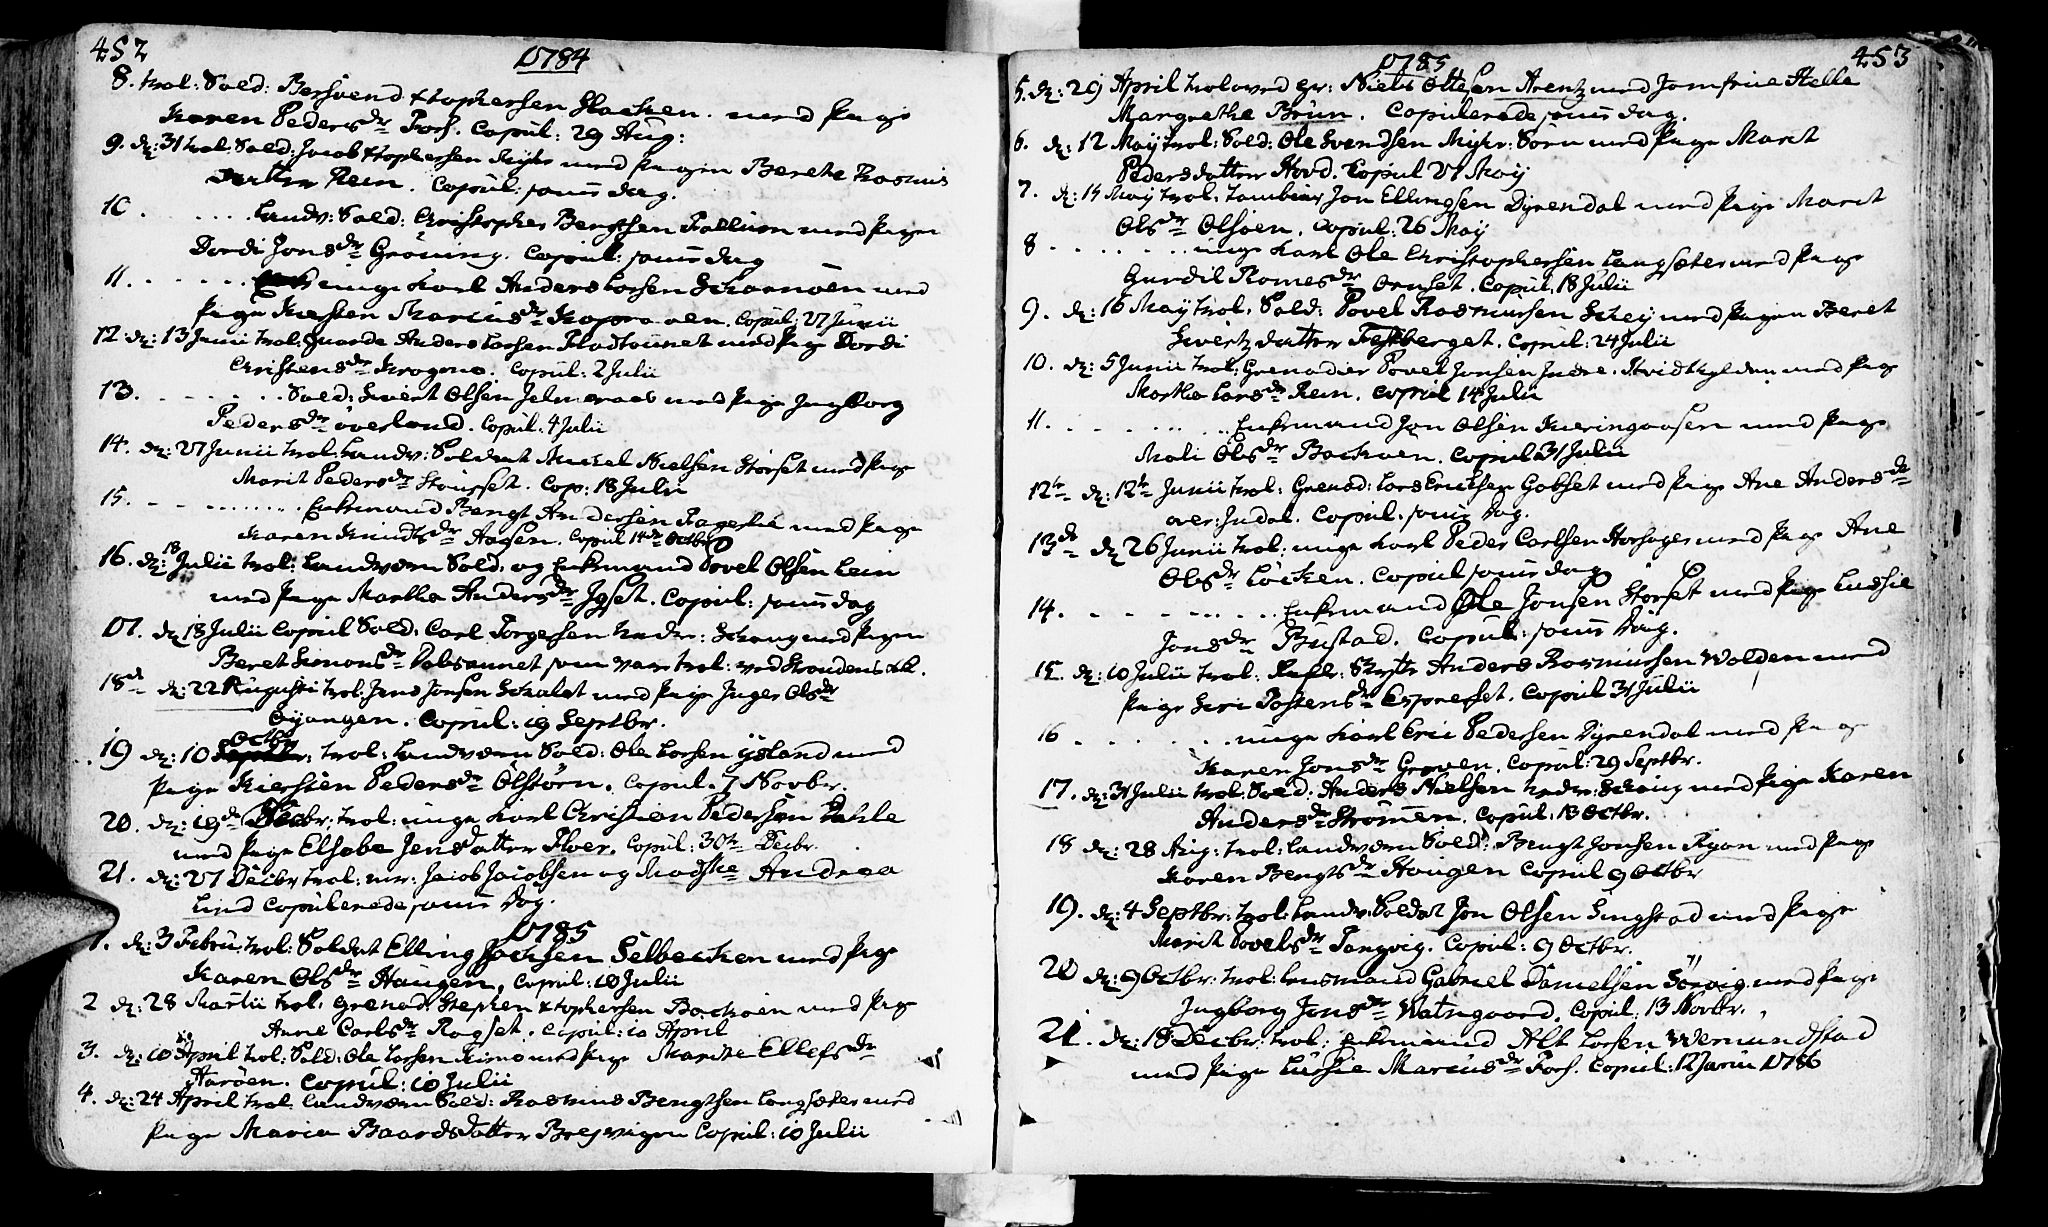 452
1784
8. trol: Sold: Bersvend Xtophersen Slacken. med Pige
Karen Peders dr Fors. Copul: 29 Aug:
9. d: 31 trol: Sold: Jacob Xtophersen med Pigen Berethe Rasmus
datter Rein. Copul: samme dag.
10. . . . . . Landv: Sold: Christopher Bengtsen med Pigen
Dordi Jons dr Gröning. Copul: samme dag
11. . . . . . unge Karl Anders Larsen med
Pige Kiersten Marcus dr. Copul: 27 Junii
12. d: 13 Junii trol: Anders Larsen med Pige Dordi
Christens dr Krogmo. Copul: 2 Julii
13. . . . . . . Sold: Sivert Olsen med Pige Ingeborg
Peders dr överland. Copul: 4 Julii
14. d: 27 Junii trol: Landv: Soldat Mickel Nielsen Störset med Pige
Marit Peders dr. Cop: 18 Julii
15. . . . . . . . Enkemand Bengt Andersen med Pige
Karen Knuds dr Aasen. Copul 14de Octbr
16. d: 18 Julii trol: Landværn Sold. og Enkemand Povel Olsen Lein
med Pige Marthe Anders dr Igset. Copul: samme dag
17. d 18 Julii Copul Sold: Carl Torgersen Nedr: Schaug med Pigen
Beret Simons dr som vare trol: ved
18d d: 22 Augusti trol: Jens Jonsen Schalat med Pige Inger Ols dr
Öyangen. Copul: 19 Septbr.
19 d: 10 Octbr: trol: Landværn Sold: Ole Larsen ysland med
Pige Kiersten Peders dr Ölstörn. Copul. 7 Novbr.
20. d: 19de Decbr: trol: unge Karl Christian Pedersen Dahle
med Pige Elsebe Jens datter Floer. Copul: 30te Decbr.
21. d: 27 Decbr trol: mr: Jacob Jacobsen og Madske Andrea
Lind Copulerede samme Dag.
1785
1. d: 3 Febru. trol: Soldat Elling Selbecken med Pige
Karen Ols dr Haugen, Copul: 10 Julii
2 d: 28 Martii trol: Grenad: Stephen Xtophersen Backen med Pige
Anne Carls dr Rogset. Copul: 10 April
3. d: 10 April trol: Sold: Ole Larsen med Pige Marite Ellefs dr
Aaröen. Copul: 10 Julii
4. d: 24 April trol: Landværn Sold: Rasmus Bengtsen Langsæter med
Pige Maria Baards datter Copul: 10 Julii
453
1785
5. d: 29 April troloved hr: Niels Ottesen Arentz med Jomfrue Helle
Margrethe Brun. Copulerede samme dag.
6. d: 12 Maij trol: Sold: Ole Svendsen Myhr: Sörn med Pige Marit
Pedersdatter Hovd. Copul 27 Maij
7. d: 14 Maij trol: Tambour Jon Ellingsen Dyrendal med Pige Marit
Ols dr Olsöen. Copul: 26 Maij
8 . . . . . . unge Karl Ole Christophersen Langsæter med Pige
Gurdil Romes dr Ornset. Copul. 18 Julii
9. d: 16 Maij trol: Sold: Povel Rasmussen Schey med Pigen Beret
Sivertz datter. Copul: 24 Julii
10. d: 5 Junii trol: Grenadier Povel Jonsen Indre med Pige
Marthe Lars dr Rein. Copul 14 Julii
11. . . . . . . Enkemand Jon Olsen med Pige
Mali Ols dr Backen. Copul 31 Julii
12te d: 12te Junii trol: Grenad: Lars Ericksen Gobset med Pige Ane Anders dr
over: Indal. Copul: samme dag.
13de d 26 Junii trol: unge Karl Peder Carlsen med Pige Ane
Ols dr Löcken. Copul samme dag
14. . . . . . . Enkemand Ole Jonsen Störset med Pige Ludsie
Jons dr Bustad. Copul: samme Dag.
15. d: 10 Julii trol: Anders Rasmussen Wolden med
Pige Siri Tostens dr Espnesset. Copul 31 Julii
16 . . . . . . unge Karl Eric Pedersen Dyrendal med Pige
Karen Jons dr Groven. Copul: 29 Septbr.
17. d: 31 Julii trol: Sold: Anders Nielsen Nedr: Schaug med Pige Karen
Anders dr Strömen. Copul: 13 Octbr.
18 d: 28 Aug: trol: Landværn Sold: Bengt Jonsen Ryan med Pige
Karen Bengts dr Haugen Copul 9 Octbr
19. d: 4 Septbr: trol: Landv: Soldat Jon Olsen Singstad med Pige
Marit Povels dr Tangvig. Copul: 9 Octbr.
20 d: 9 Octbr: trol: Lensmand Gabriel Danielsen Sörvig med Pige
Ingborg Jons dr Watngaard. Copul: 13 Novbr.
21. d: 18 Decbr: trol: Enkemand Alt Larsen Wemundstad
med Pige Lussie Marcus dr Fors. Copul: 12 Janu 1786